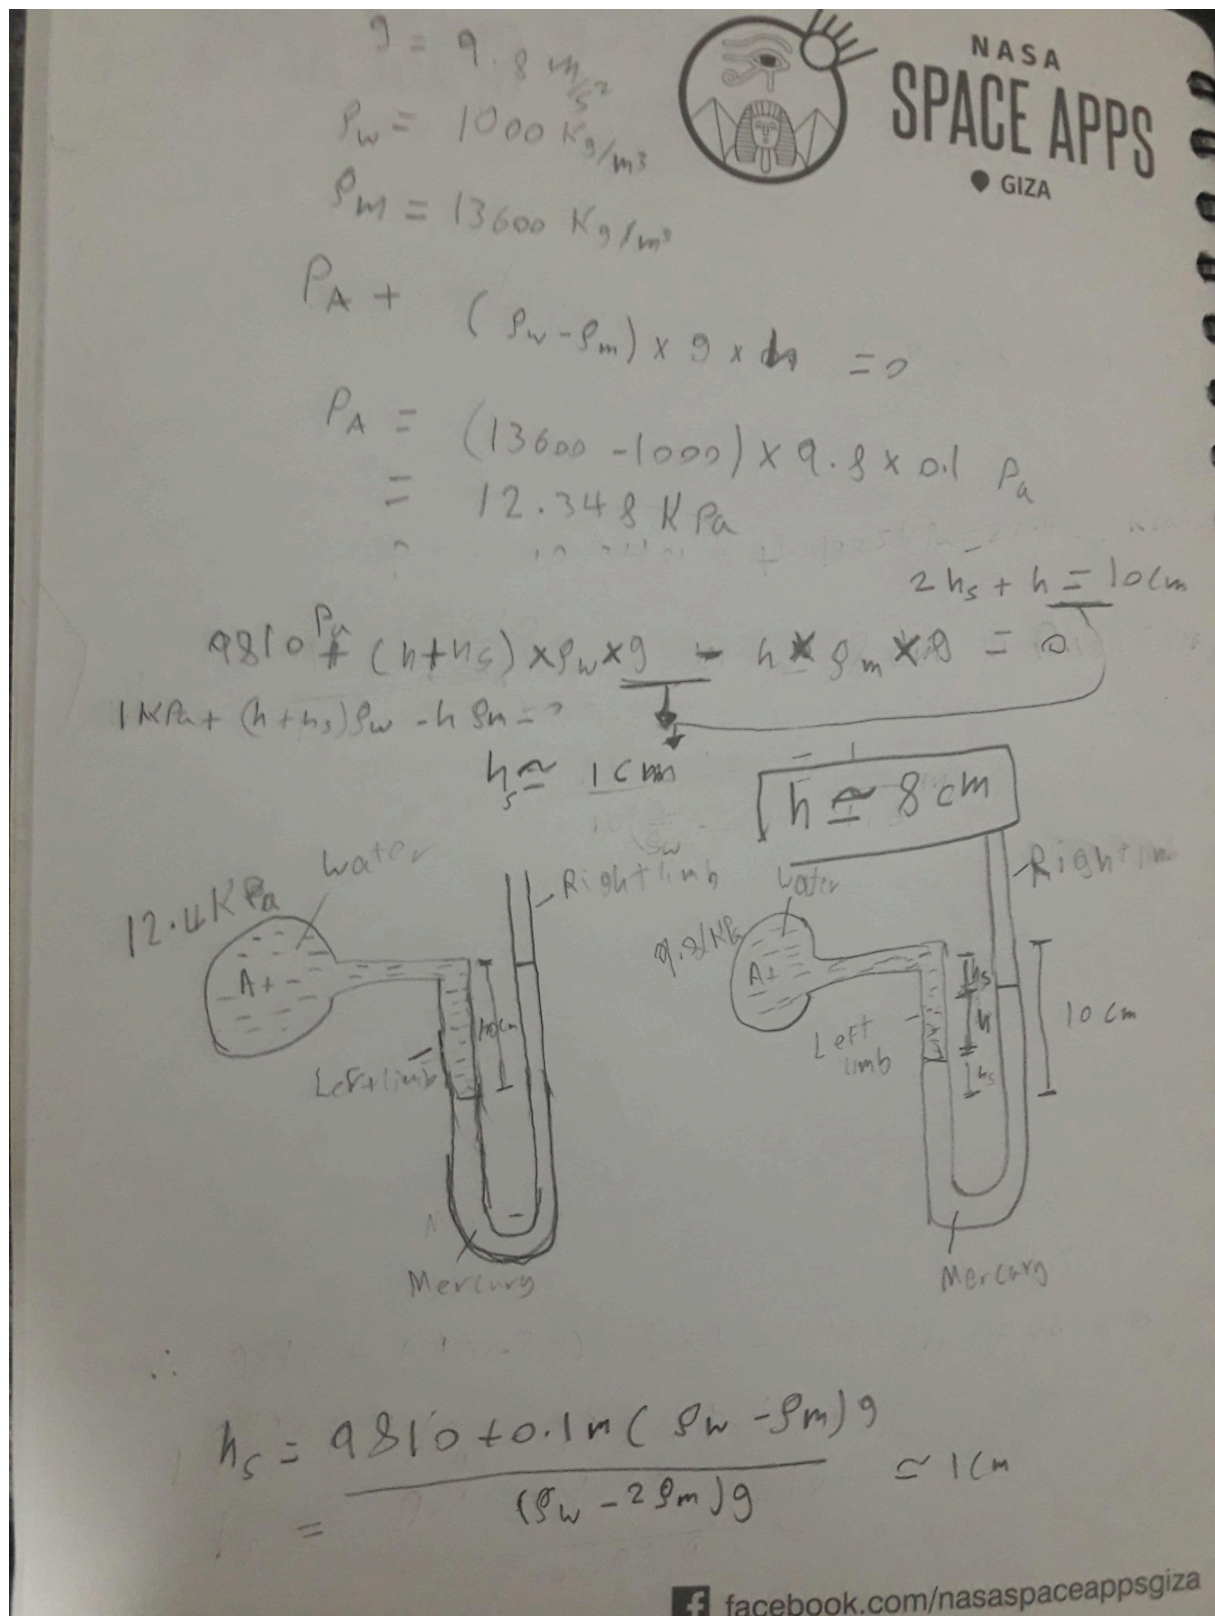 NASA
SPACE APPS
GIZA
g = 9.8 m/s²
ρw = 1000 Kg/m³
ρm = 13600 Kg/m³
PA + (ρw - ρm) x g x h = 0
PA = (13600 - 1000) x 9.8 x 0.1 Pa
= 12.348 KPa
2hs + h = 10cm
9810 Pa + (h+hs) x ρw x g - h x ρm x g = 0
1KPa + (h+hs)ρw - h ρm = 0
hs ≃ 1cm
h ≃ 8cm
water
12.4KPa
A+
Right limb
10cm
Left limb
Mercury
water
9.81KPa
A+
Right limb
hs
h
hs
10 cm
Left limb
Mercury
∴
hs = 9810 + 0.1m (ρw - ρm)g
(ρw - 2ρm)g
≃ 1cm
=
facebook.com/nasaspaceappsgiza